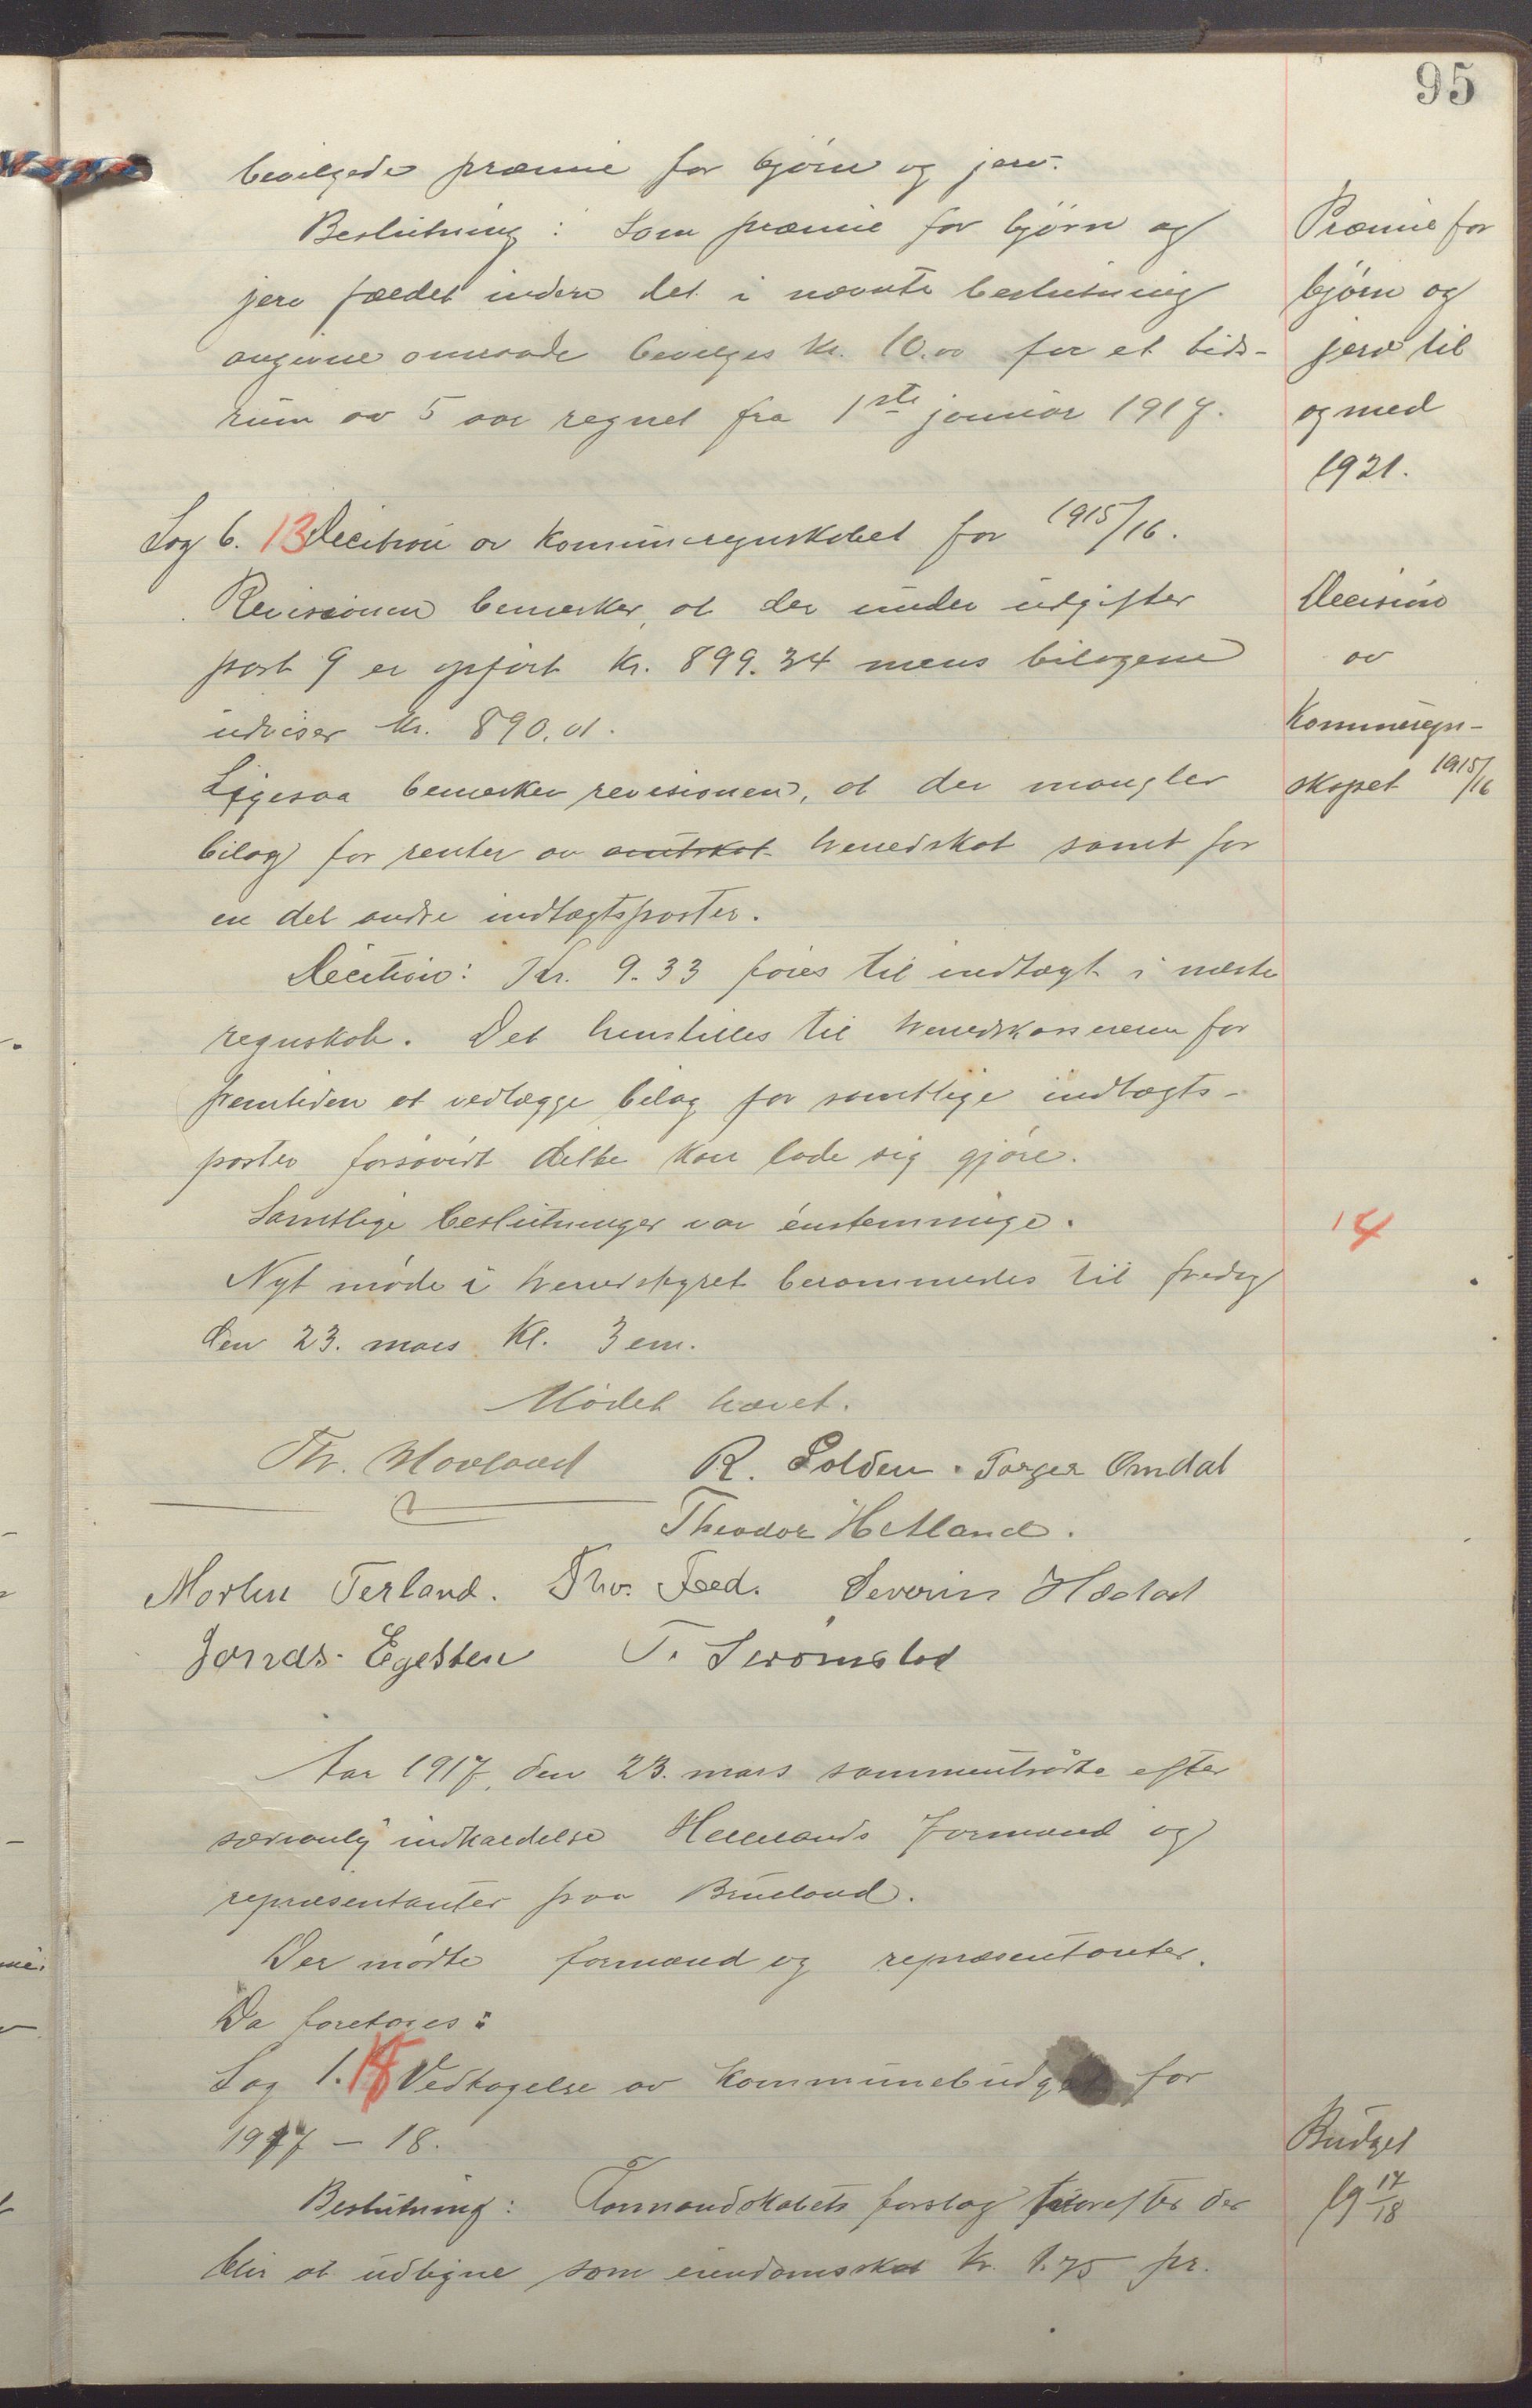 95
bevilgede præmie for bjørn og jerv.
Beslutning: Som præmie for bjørn og
jerv fældet inden det i nævnte beslutning
angivne omraade bevilges kr. 10.00 for et tids-
rum av 5 aar regnet fra 1ste januar 1917.
Præmie for
bjørn og
jerv til
og med
1921.
Sag 6. 13 Decition av kommuneregnskabet for 1915/16.
Revisionen bemerker, at der under udgifter
post 9 er opført kr. 899.34 mens bilagene
udviser kr. 890,01.
Ligesaa bemerker revisionen, at der mangler
bilag for renter av amtskat herredskat samt for
en del andre indtægtsposter.
Decision
av
Kommuneregn-
skapet 1915/16
Decition: Kr. 9.33 føies til indtægt i næste
regnskab. Det henstilles til herredskassereren for
fremtiden at vedlægge bilag for samtlige indtægts-
poster forsaavidt dette kan lade sig gjøre.
Samtlige beslutninger var énstemmige.
14
Nyt møde i herredstyret berammedes til fredag
den 23. mars kl. 3 em.
Mødet hævet.
Th. Hovland R. Polden. Torger Omdal
Theodor Hetland.
Martin Terland. Tho. Fed. Severin Hæstad
Jonas Egesten T. Strømstad
Aar 1917, den 23. mars sammentraadte efter
sedvanlig indkaldelse Hellelands formænd og
repræsentanter paa Brueland.
Der mødte formænd og repræsentanter.
Da foretages:
Sag 1. 15 Vedtagelse av kommunebudget for
1917 - 18.
Beslutning: Formandskabets forslag hvorefter der
blir at udligne som eiendomsskat kr. 1.75 pr.
Budget
19 17/18